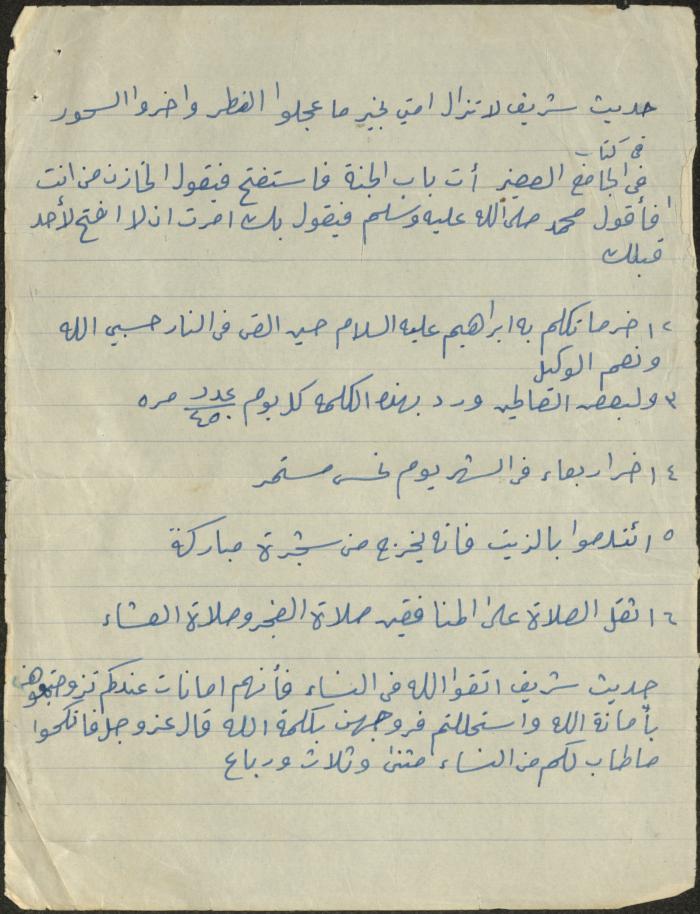 حديث شريف لا تزال امتي بخير ما عجلوا الفطر واخروا السحور
فى كتاب
فى الجامع الصغير أت باب الجنة فاستفتح فيقول الخازن من انت
١ فأقول محمد صلى الله عليه وسلم فيقول بك امرت ان لا افتح لأحد
قبلك
٢ اخر ما تكلم به ابراهيم عليه السلام حين القى فى النار حسبي الله
ونعم الوكيل
٣ ولبعض الصالحين ورد بهذه الكلمة كل يوم عدد ٤٥٠ مره
٤ اخر اربعاء فى الشهر يوم نحس مستمر
٥ ائتدموا بالزيت فانه يخرج من شجرة مباركة
٦ اثقل الصلاة على المنافقين صلاة الفجر وصلاة العشاء
حديث شريف اتقوا الله فى النساء فأنهم امانات عندكم تزوجتموهن
بأمانة الله واستحللتم فروجهن بكلمة الله قال عز وجل فانكحوا
ما طاب لكم من النساء مثنى وثلاث ورباع